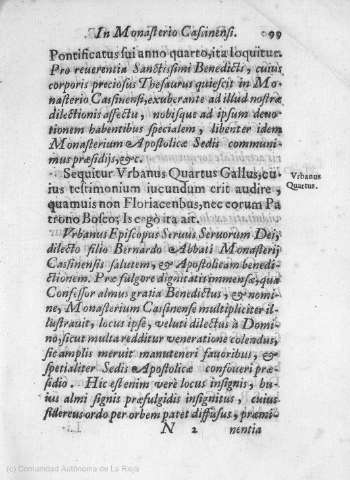 In Monasterio Cassinensi. 99
Pontificatus sui anno quarto, ita loquitur.
Pro reuerentia Sanctissimi Benedicti, cuius
corporis preciosus Thesaurus quiescit in Mo
nasterio Cassinensi, exuberante ad illud nostræ
dilectionis affectu, nobisque ad ipsum deuo
tionem habentibus specialem, libenter idem
Monasterium Apostolicæ Sedis communi
mus præsidijs, &c.
Sequitur Vrbanus Quartus Gallus, cu
ius testimonium iucundum erit audire,
quamuis non Floriacenbus, nec eorum Pa
trono Bosco; Is ergò ita ait.
Vrbanus
Quartus.
Vrbanus Episcopus Seruus Seruorum Dei,
dilecto filio Bernardo Abbati Monasterij
Cassinensis salutem, & Apostolicam benedi
ctionem. Præ fulgore dignitatis immensæ, qua
Confessor almus gratia Benedictus, & nomi
ne, Monasterium Cassinense multipliciter il
lustrauit, locus ipse, veluti dilectus à Domi
no, sicut multa redditur veneratione colendus,
sic amplis meruit manuteneri fauoribus, &
spetialiter Sedis Apostolicæ confoueri præ-
sidio. Hic est enim verè locus insignis, hu
ius almi signis præfulgidis insignitus, cuius
sidereus ordo per orbem patet diffusus, præmi-
N 2 nentia
(c) Comunidad Autónoma de La Rioja